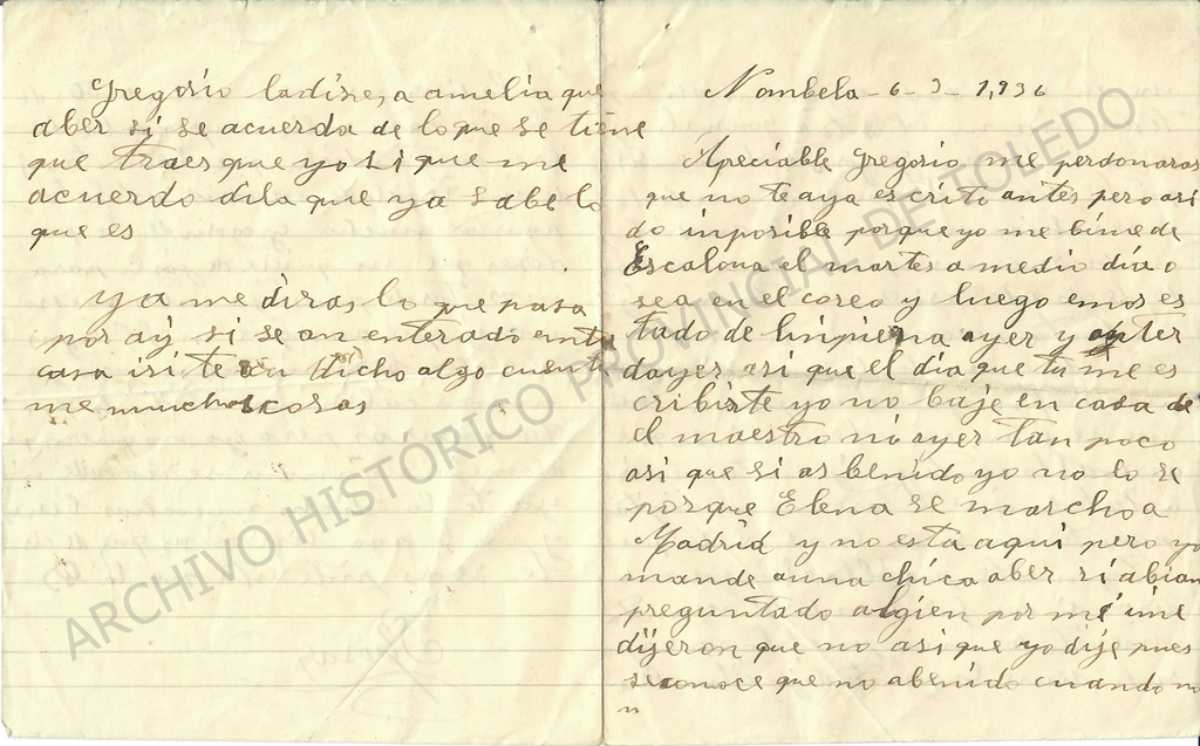 Gregorio ladires, a amelia que
aber si se acuerda de lo que se tiene
que traer que yo si que me
acuerdo dila que ya sabe lo
que es
ya me diras lo que pasa
por ay si se an enterado entu
casa isi te an dicho algo cuenta
me muchas cosas
Nombela - 6 - 3 - 1,936
Apreciable Gregorio me perdonaras
que no te aya escrito antes pero asi
do inposible porque yo me bine de
Escalona el martes a medio dia o
sea en el coreo y luego emos es
tado de linpieza ayer y anter
dayer asi que el dia que tu me es
cribirte yo no baje en casa de
el maestro ni ayer tan poco
asi que si as benido yo no lo se
porque Elena se marcho a
Madrid y no esta aqui pero yo
mande auna chica aber si abian
preguntado algien por mi ime
dijeron que no asi que yo dije pues
seconoce que no abenido cuando no
ARCHIVO HISTÓRICO PROVINCIAL DE TOLEDO